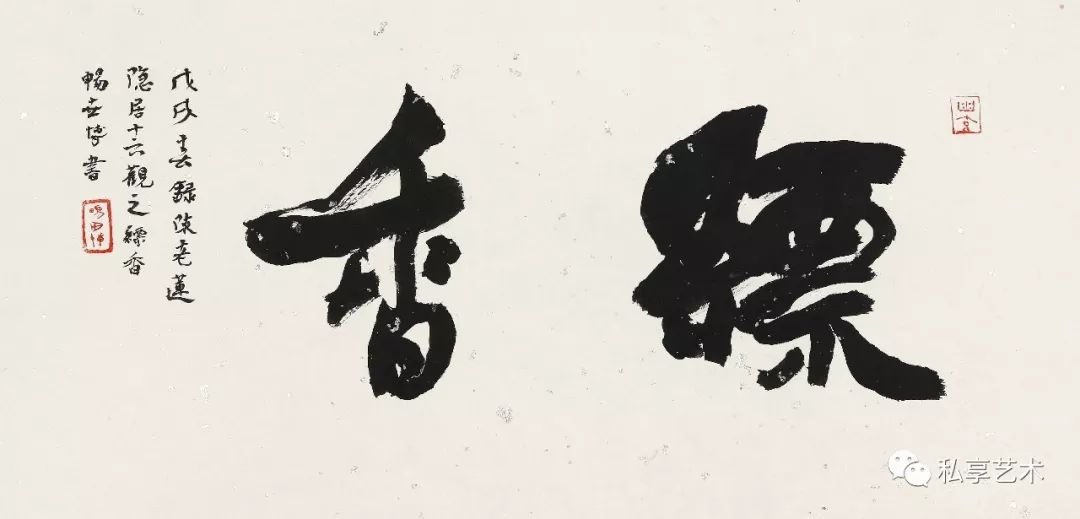 縹香
戊戌春錄陳老蓮
隐居十六觀之縹香
暢世博書
私享艺术